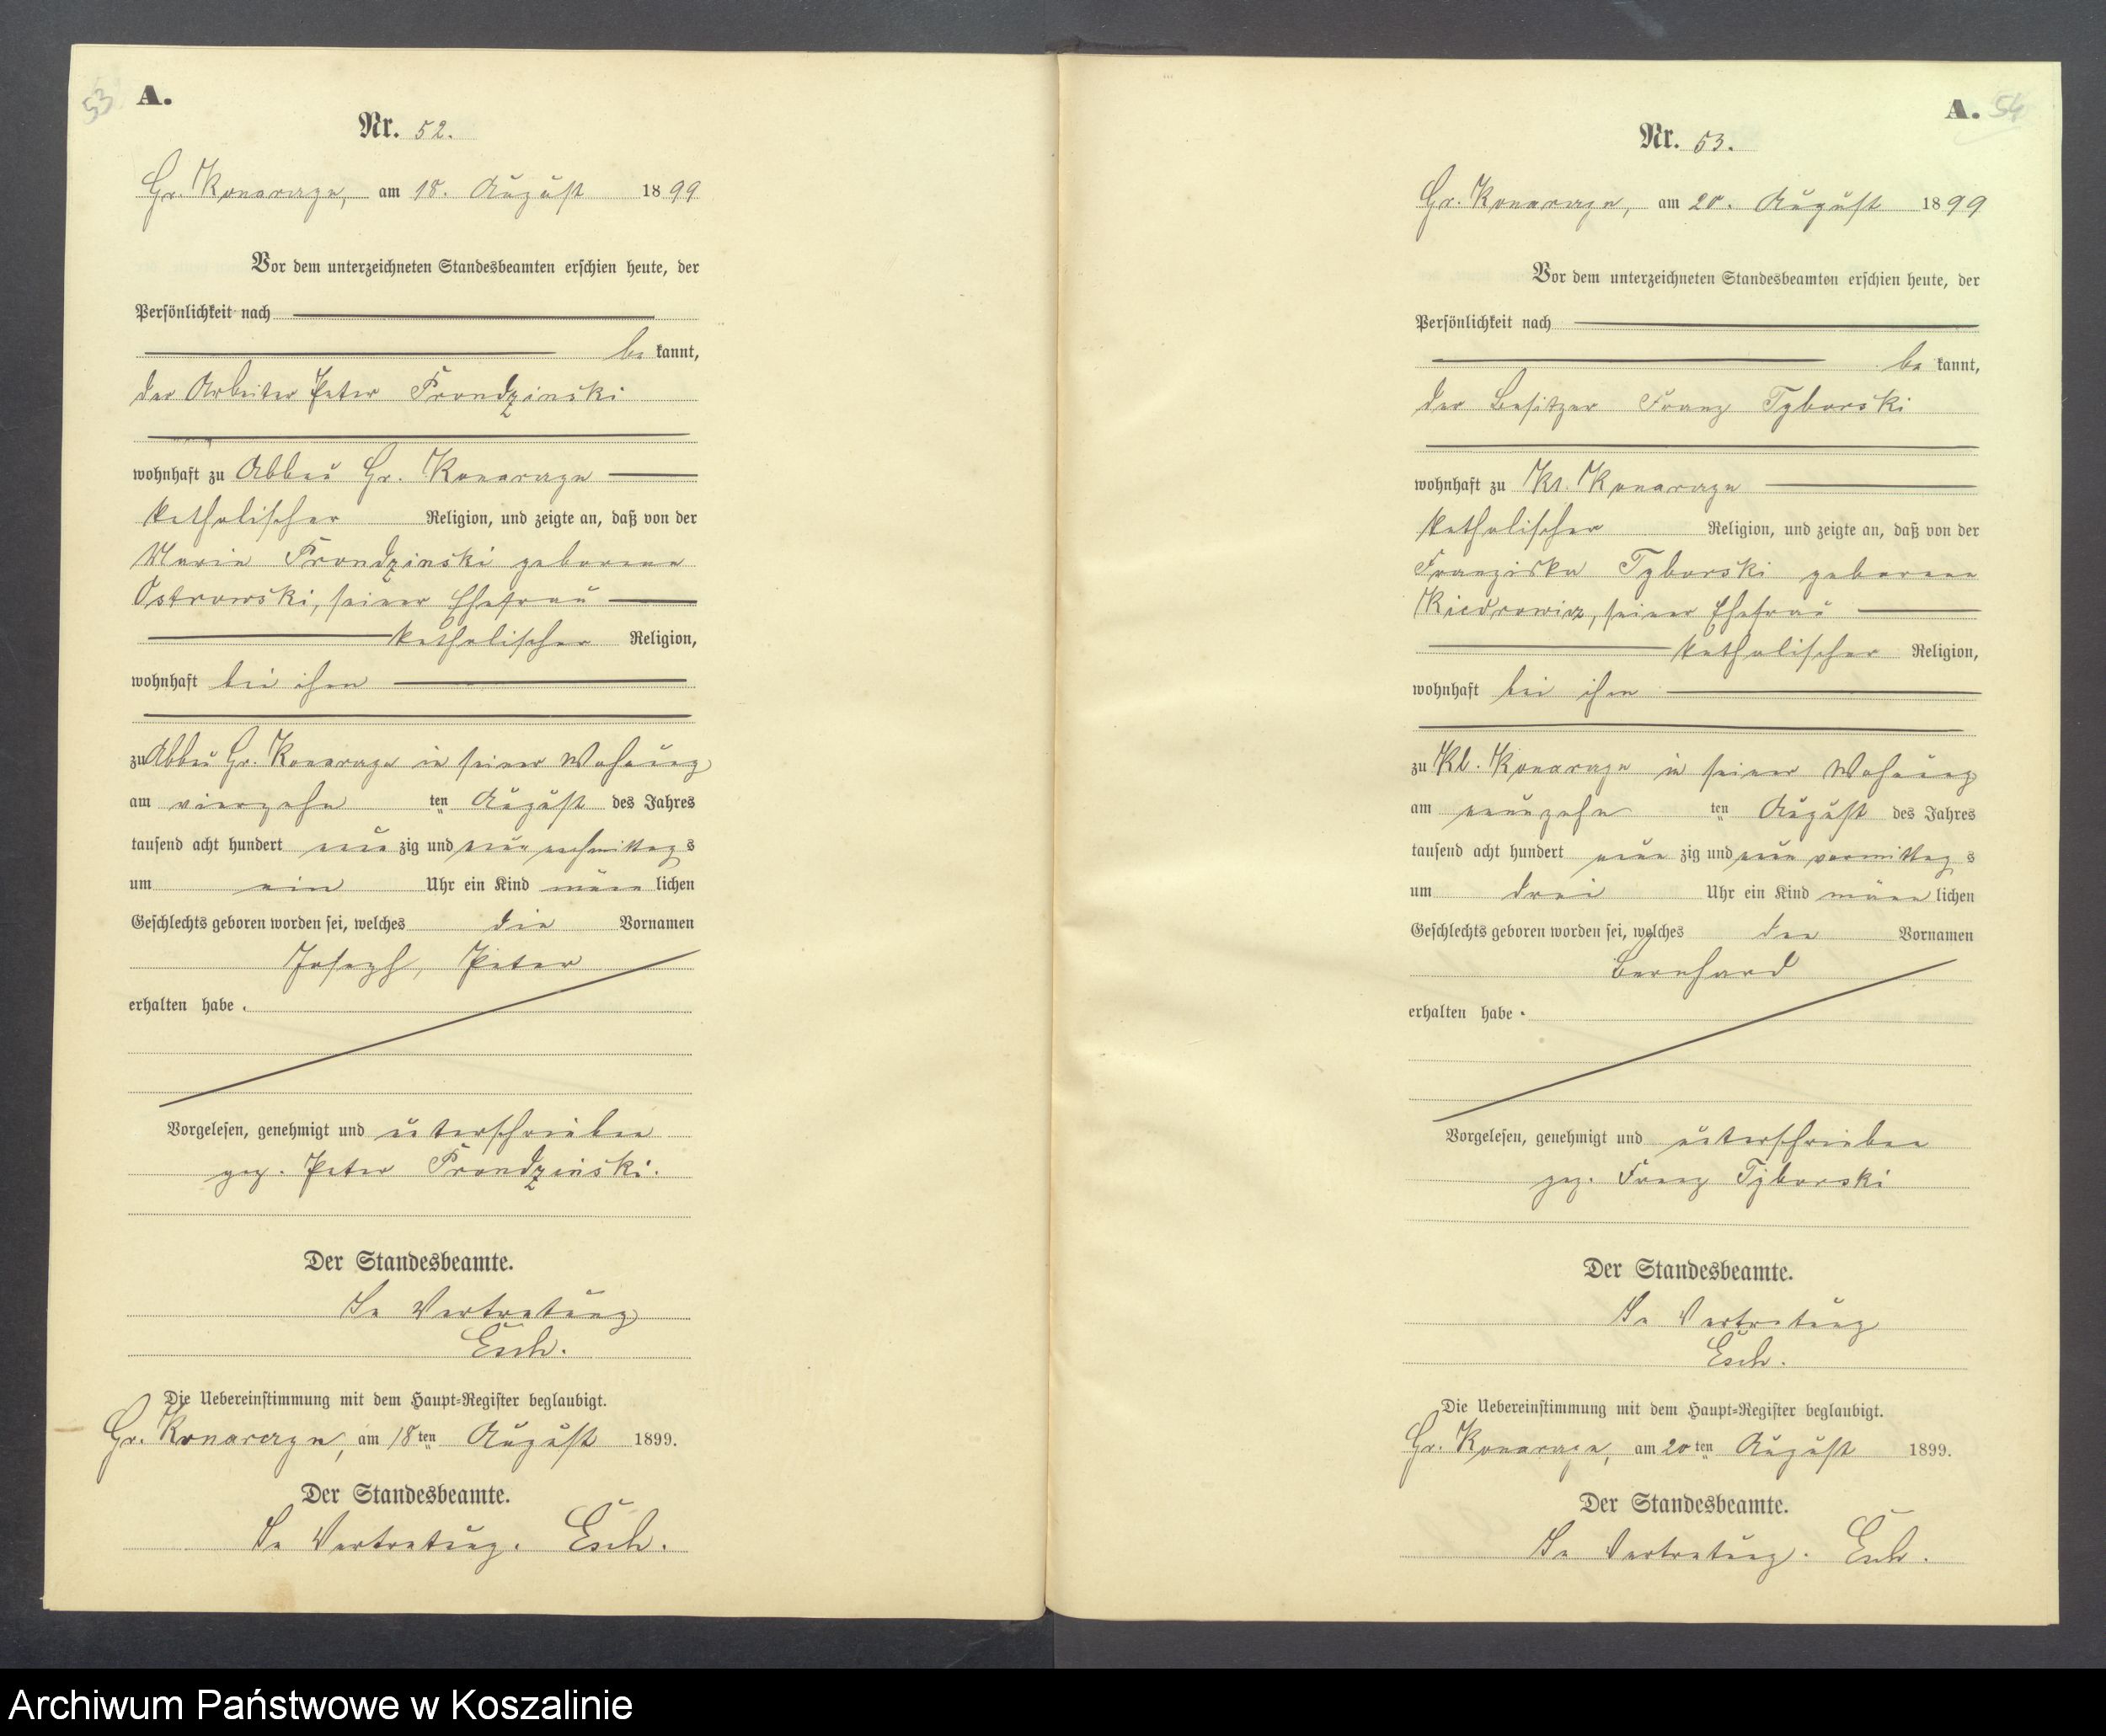 53
A.
Nr. 52.
Gr. Konarczyn, am 18. August 1899
Vor dem unterzeichneten Standesbeamten erschien heute, der
Persönlichkeit nach
be kannt,
der Arbeiter Peter Prondzinski
wohnhaft zu Abbau Gr. Konarczyn
katholischer Religion, und zeigte an, daß von der
Marie Prondzinski geborene
Ostrowski, seiner Ehefrau
katholischer Religion,
wohnhaft bei ihm
zu Abbau Gr. Konarczyn in seiner Wohnung
am vierzehn ten August des Jahres
tausend acht hundert neun zig und neun nachmittag s
um ein Uhr ein Kind männ lichen
Geschlechts geboren worden sei, welches die Vornamen
Joseph, Peter
erhalten habe.
Vorgelesen, genehmigt und unterschrieben
gez. Peter Prondzinski.
Der Standesbeamte.
In Vertretung
Esch.
Die Uebereinstimmung mit dem Haupt-Register beglaubigt.
Gr. Konarczyn, am 18ten August 1899.
Der Standesbeamte.
In Vertretung. Esch.
A. 54
Nr. 53.
Gr. Konarczyn, am 20. August 1899
Vor dem unterzeichneten Standesbeamten erschien heute, der
Persönlichkeit nach
be kannt,
der Besitzer Franz Tyborski
wohnhaft zu Kl. Konarczyn
katholischer Religion, und zeigte an, daß von der
Franziska Tyborski geborene
Kiedrowicz, seiner Ehefrau
katholischer Religion,
wohnhaft bei ihm
zu Kl. Konarczyn in seiner Wohnung
am neunzehn ten August des Jahres
tausend acht hundert neun zig und neun vormittag s
um drei Uhr ein Kind männ lichen
Geschlechts geboren worden sei, welches den Vornamen
Bernhard
erhalten habe.
Vorgelesen, genehmigt und unterschrieben
gez. Franz Tyborski
Der Standesbeamte.
In Vertretung
Esch.
Die Uebereinstimmung mit dem Haupt-Register beglaubigt.
Gr. Konarczyn, am 20ten August 1899.
Der Standesbeamte.
In Vertretung. Esch.
Archiwum Państwowe w Koszalinie